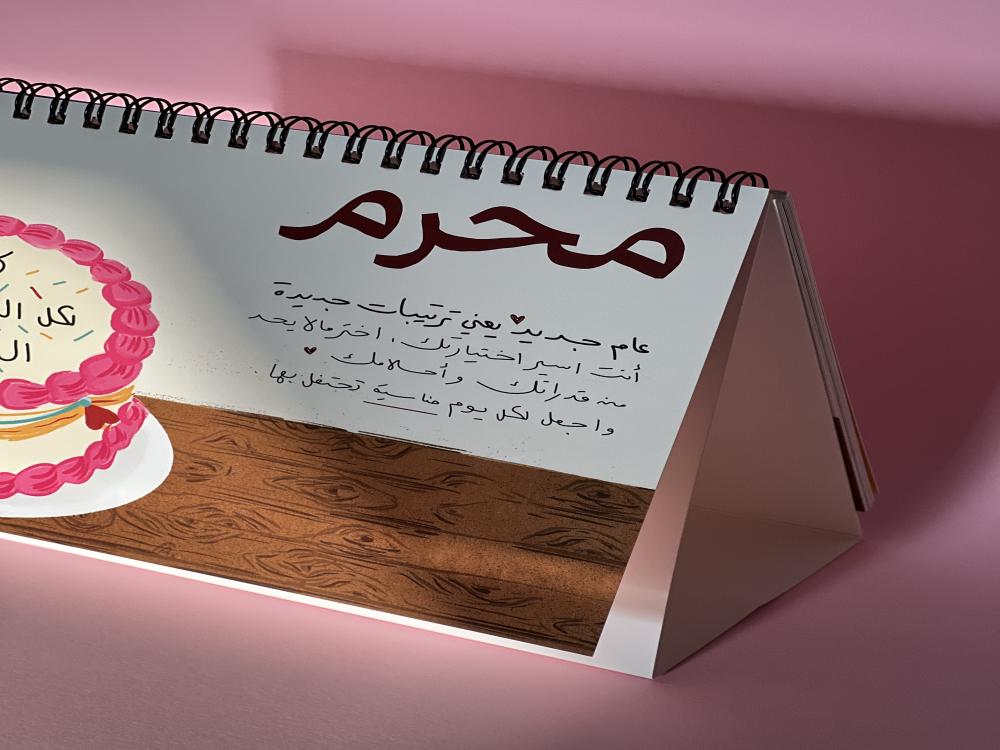 محرم
عام جديد يعني ترتيبات جديدة
أنت أسير اختياراتك اختر ما لا يحد
من قدراتك وأحلامك
واجعل لكل يوم مناسبة تحتفل بها
لكل